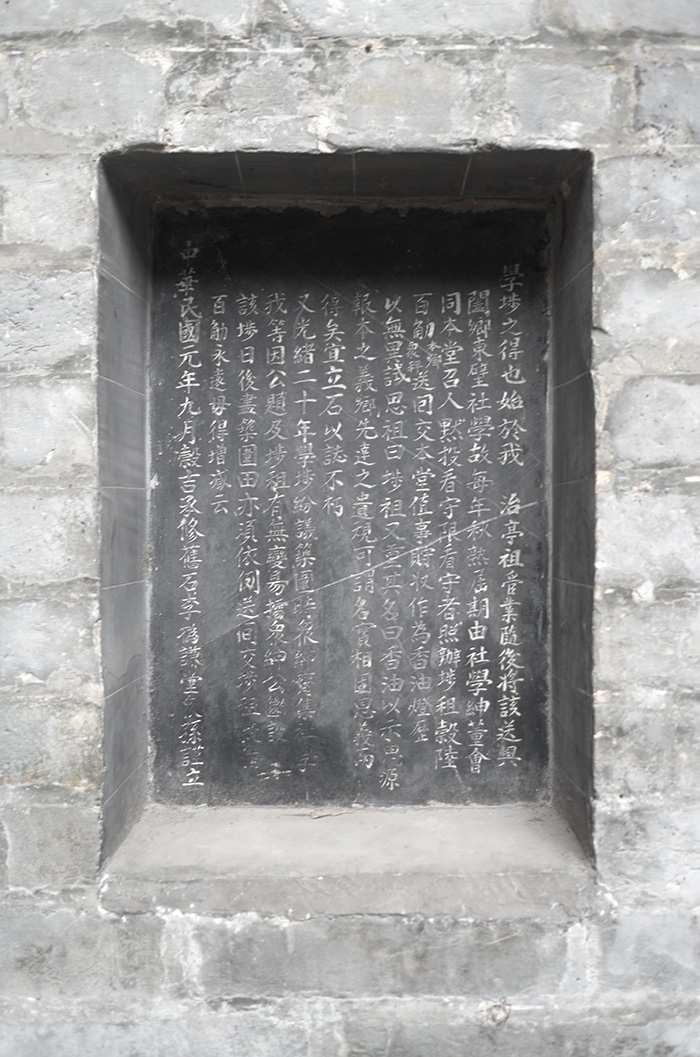 學埗之得也始於我 治亭祖營業隨後將該送與
闔鄉東壁社學故每年秋熟屆期由社學紳董會
同本堂召人熟投看守限看守者照辦埗租穀陸
百觔本鄉衆秤送回交本堂值事貯收作為香油燈歷
以無異誠思祖曰埗祖又重其名曰香油以示思源
報本之義鄉先達之遺規可謂名實相因思義兩
得矣宜立石以誌不朽
又光緒二十年學埗紛議築圍時衆紳
我等因公題及埗祖有無變易據衆紳公
該埗日後盡築圍田亦須依例送回交埗租
百觔永遠毋得增減云
中華民國元年九月穀吉承修舊石李為謙堂 孫謹立